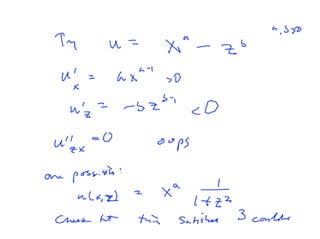 Try u = x^a - z^b a, b>0
u'_x = a x^{a-1} >0
u'_z = -b z^{b-1} < 0
u''_{zx} = 0 oops
one possib:
u(x,z) = x^a \frac{1}{1+z^2}
Check that this satisfies 3 conds